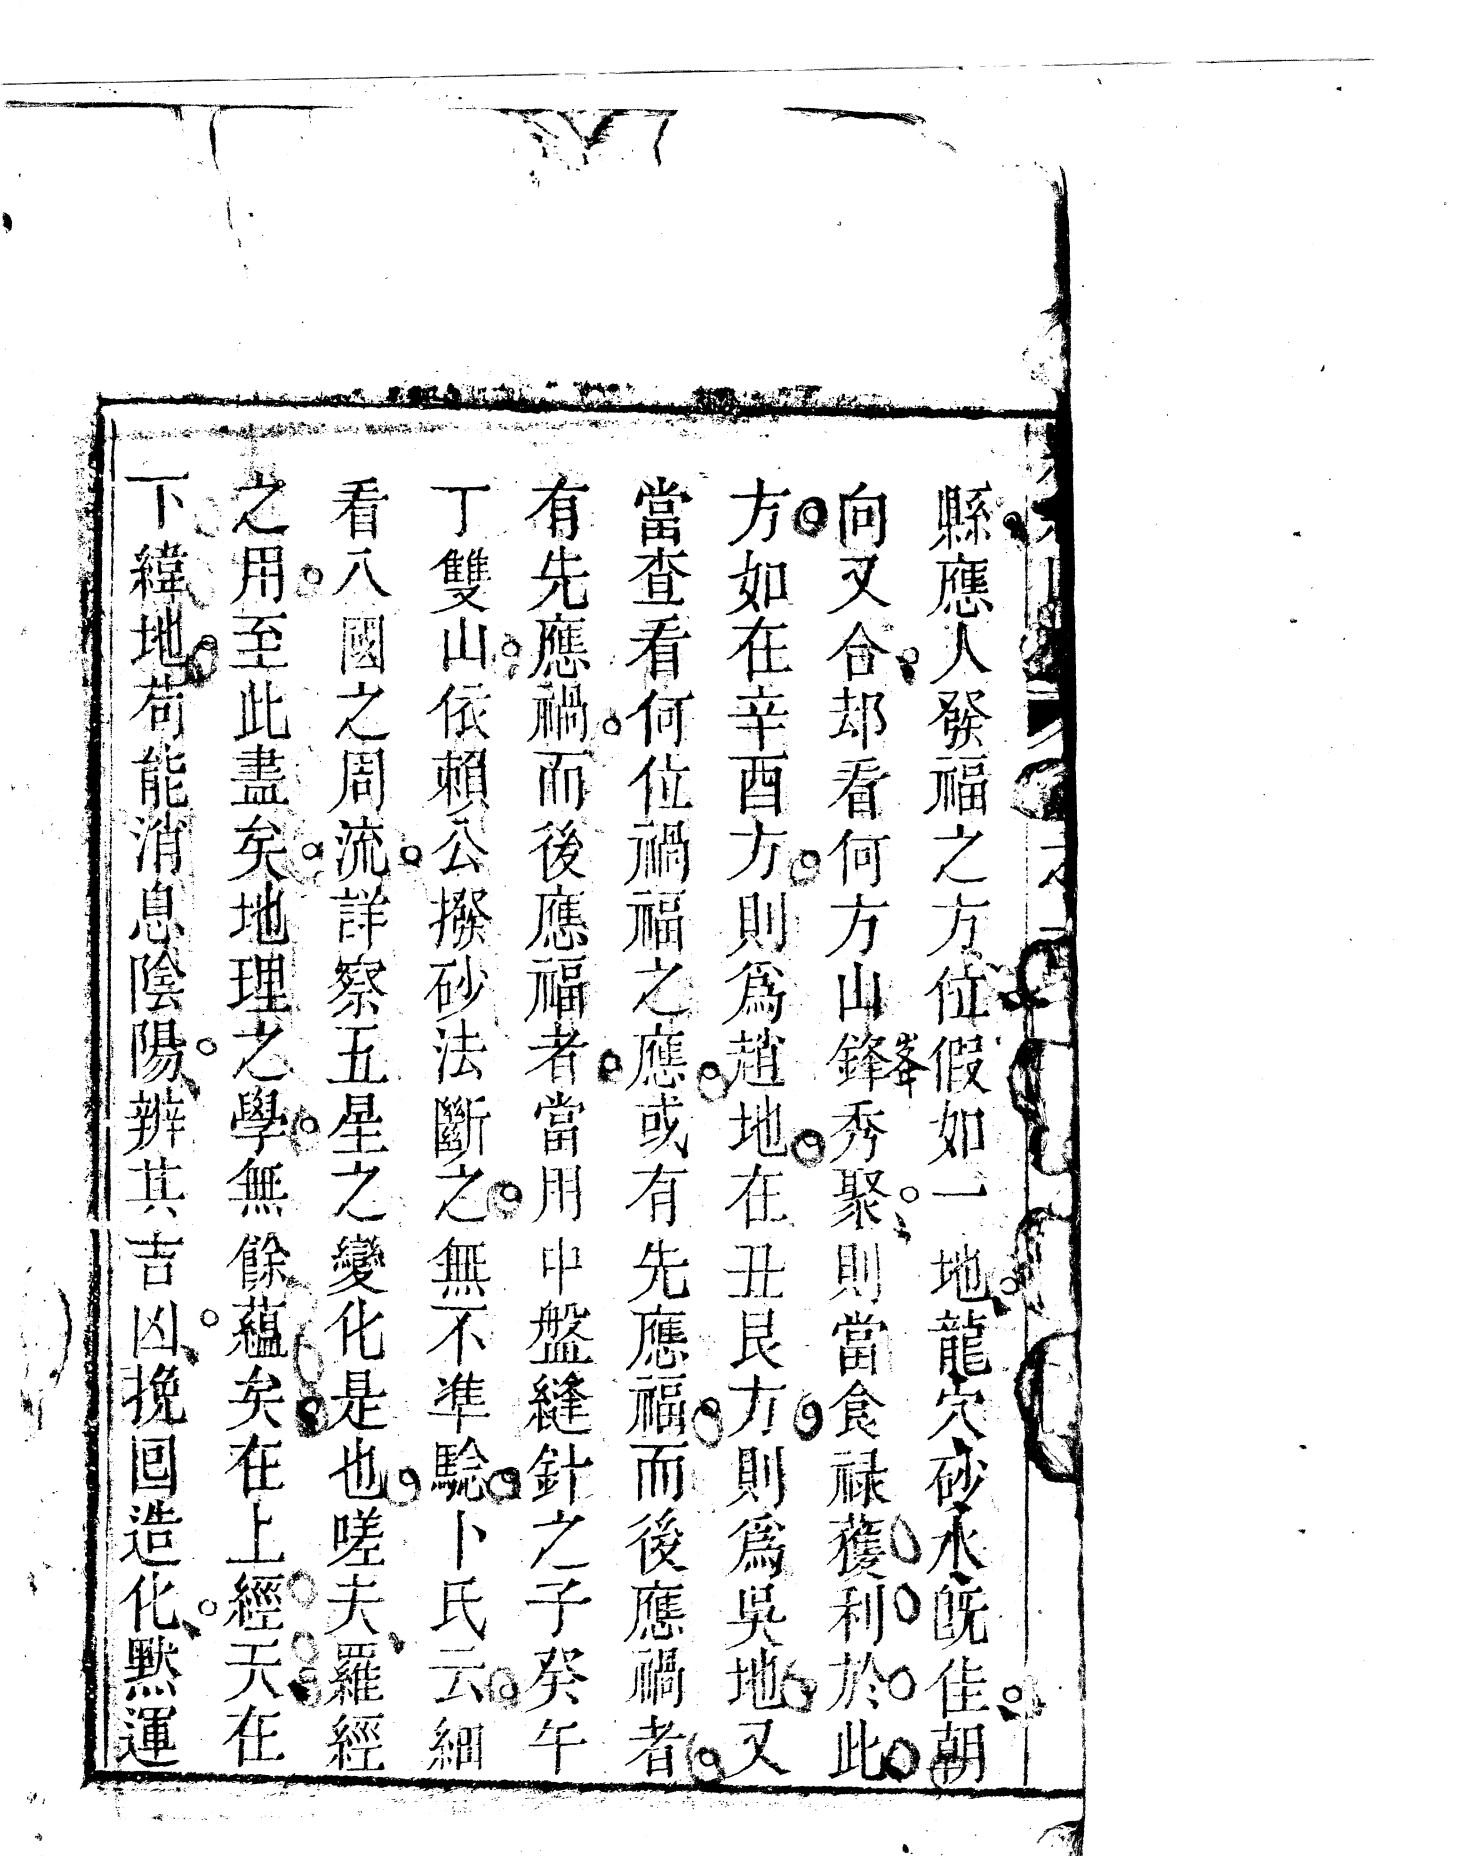 縣應人發福之方位假如一地龍穴砂水旣佳朝
向又合却看何方山鋒秀聚則當食祿獲利於此
峯
方如在辛酉方則爲趙地在丑艮方則爲吳地又
當查看何位禍福之應或有先應福而後應禍者
有先應禍而後應福者當用中盤縫針之子癸午
丁雙山依賴公撥砂法斷之無不準驗卜氏云細
看八國之周流詳察五星之變化是也嗟夫羅經
之用至此盡矣地理之學無餘蘊矣在上經天在
下緯地苟能消息陰陽辨其吉凶挽回造化默運